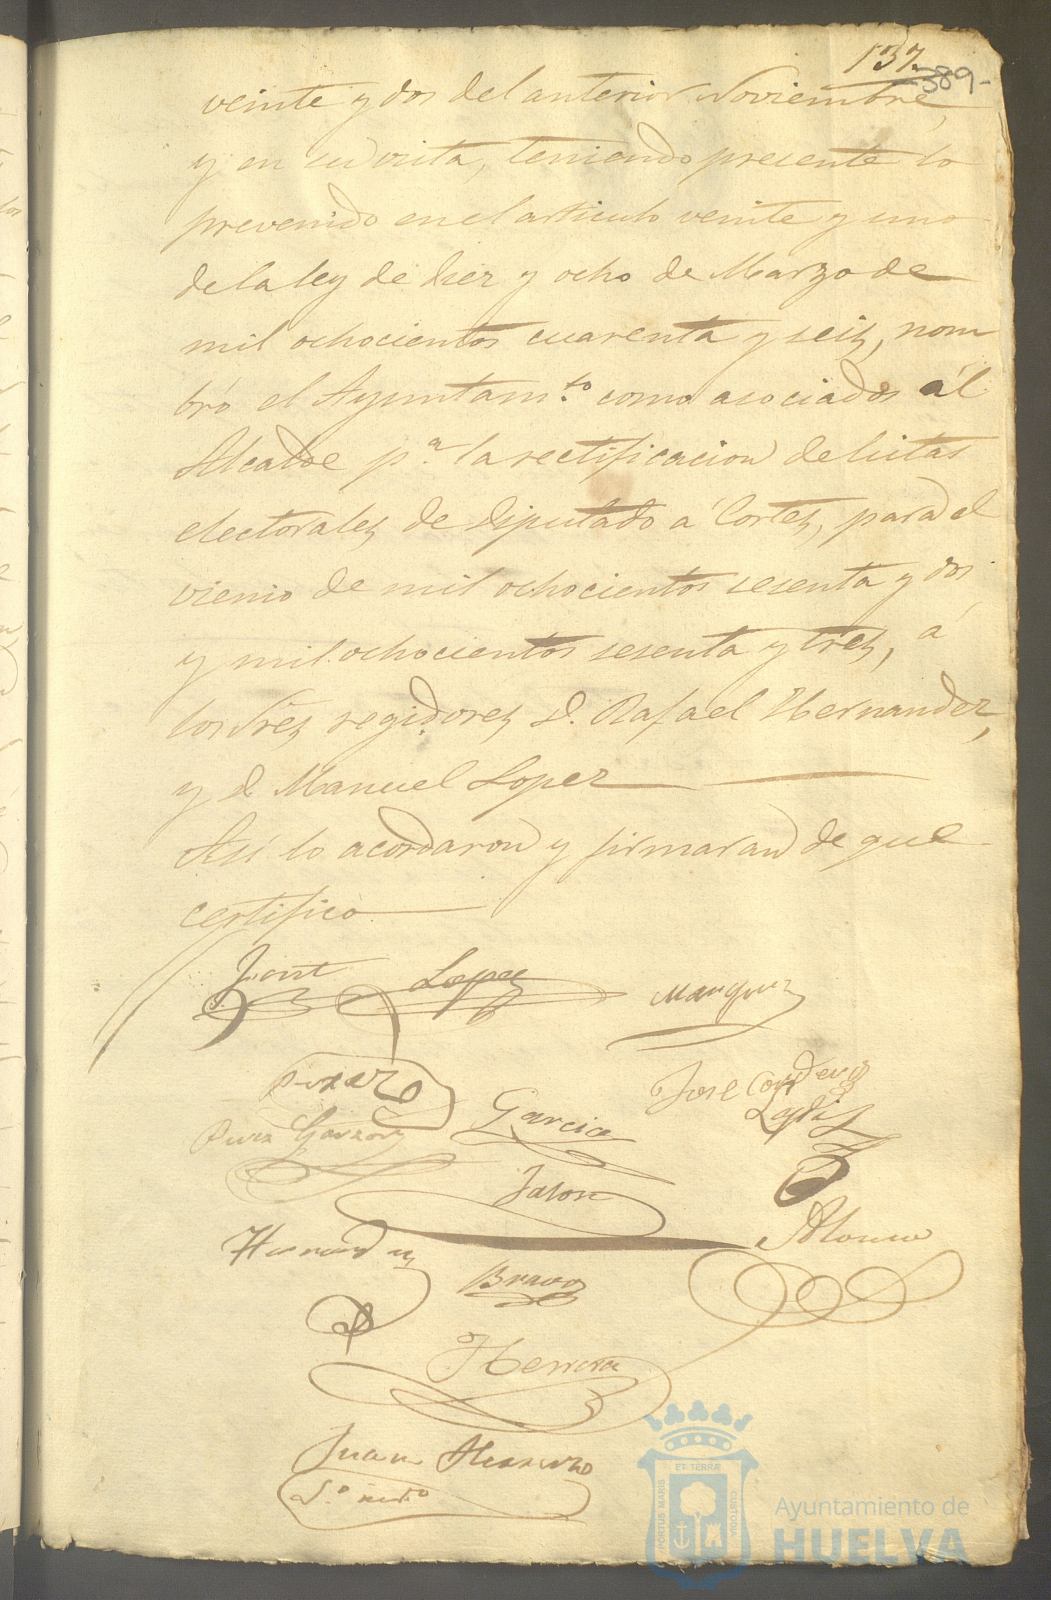 137.
389-
veinte y dos del anterior Noviembre,
y en su vista, teniendo presente lo
prevenido en el articulo veinte y uno
de la ley de diez y ocho de Marzo de
mil ochocientos cuarenta y seis, nom
bró el Ayuntam.to como asociados ál
Alcalde p.a la rectificacion de listas
electorales de Diputado á Cortes, para el
vienio de mil ochocientos sesenta y dos
y mil ochocientos sesenta y tres, á
los Sres regidores D. Rafael Hernandez,
y D. Manuel Lopez
Asi lo acordaron y firmaran de que
certifico
Lopez
Marquez
Garcia
Jose
Jalon
Alonso
Hernandez
Bravo
Herrera
Juan
S.o
PORTUS MARIS ET TERRÆ CUSTODIA
Ayuntamiento de
HUELVA